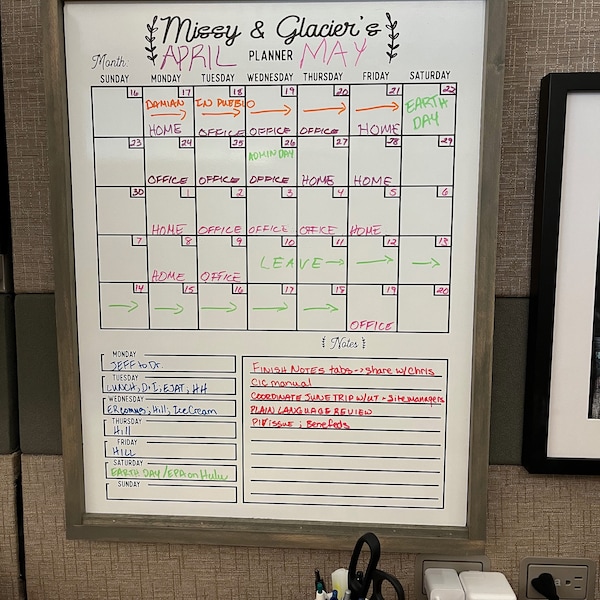 Missy & Glacier's
Month: APRIL PLANNER MAY
SUNDAY MONDAY TUESDAY WEDNESDAY THURSDAY FRIDAY SATURDAY
16 17 18 19 20 21 22
DAMIAN IN PUEBLO → → → → → EARTH DAY
HOME OFFICE OFFICE OFFICE HOME
23 24 25 26 27 28 29
ADMIN DAY
OFFICE OFFICE OFFICE HOME HOME
30 1 2 3 4 5 6
HOME OFFICE OFFICE OFFICE HOME
7 8 9 10 11 12 13
LEAVE → → →
HOME OFFICE
14 15 16 17 18 19 20
→ → → → →
OFFICE
MONDAY
JEFF to Dr.
TUESDAY
LUNCH; D+I; EJAT; HH
WEDNESDAY
ER comms; Hill; Ice Cream
THURSDAY
Hill
FRIDAY
HILL
SATURDAY
EARTH DAY / EPA on Hulu
SUNDAY
Notes
FINISH NOTES tabs -> share w/ Chris
CIC manual
COORDINATE JUNE TRIP W/UT - Site managers
PLAIN LANGUAGE REVIEW
PIV issue ; Benefeds